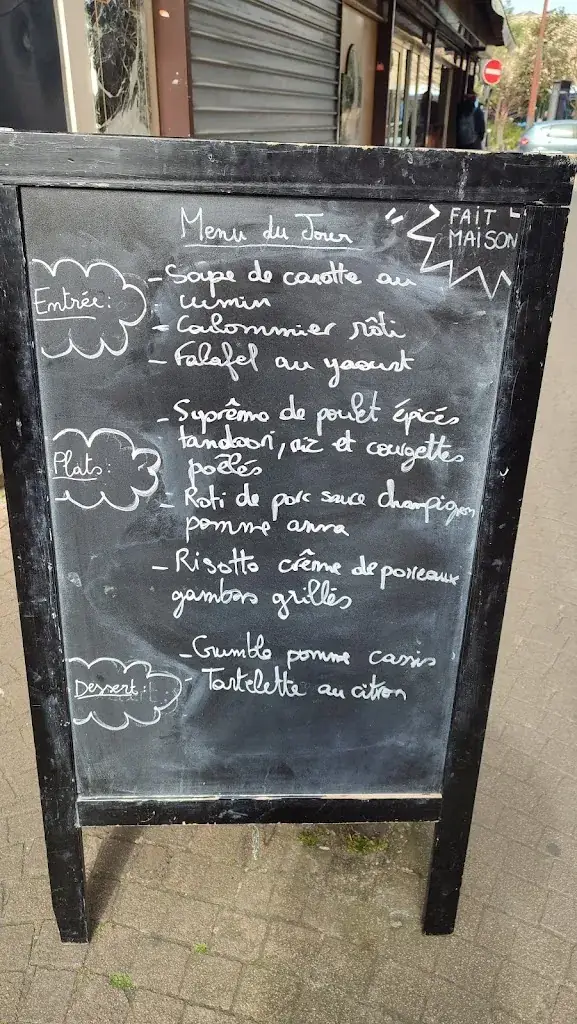 Menu du Jour
FAIT
MAISON
Entrée:
- Soupe de carotte au
cumin
- Coulommier rôti
- Falafel au yaourt
Plats:
- Suprême de poulet épices
tandoori, riz et courgettes
poêlés
- Roti de porc sauce champignon
pomme anna
- Risotto crème de poireaux
gambas grillés
Dessert:
- Crumble pomme cassis
- Tartelette au citron